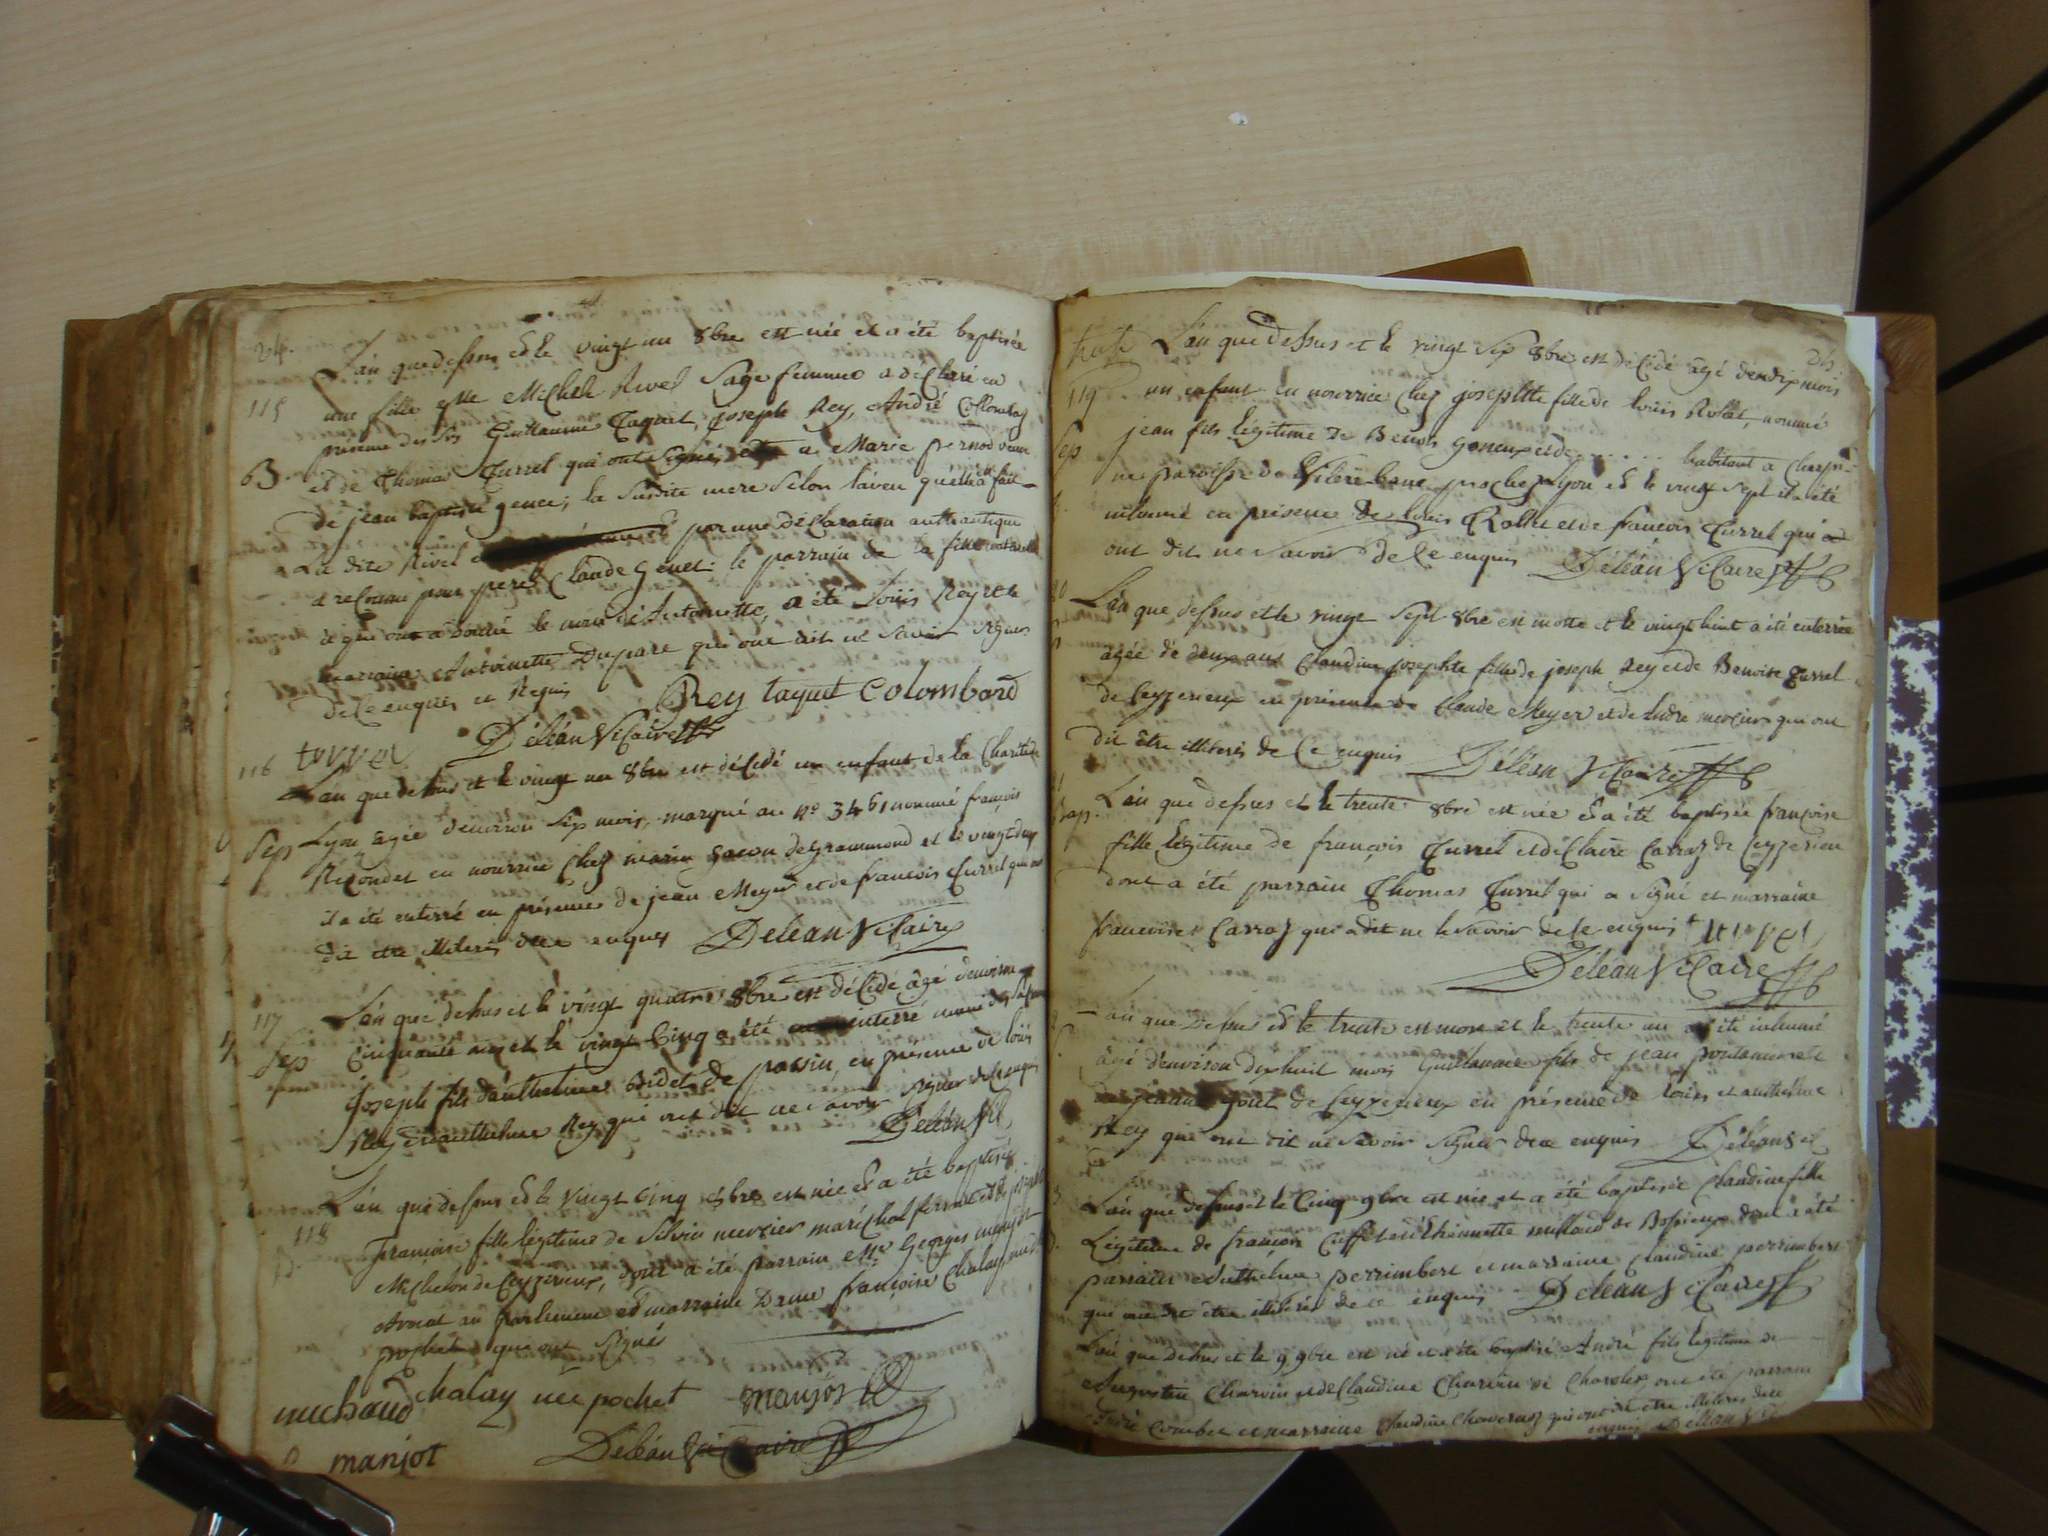 24.
L'an que dessus et le vingt un 8bre est née et a été baptisée
115 une fille Michel Rivel Sage femme a declaré en
présence des Srs Guillaume Taquet, joseph Rey, André Collombar
B. et de Thomas Turrel qui ont signés, a Marie pernod veuve
de jean baptiste gence; la Susdite mere selon l'aveu qu'elle a fait
La dite Rivel par une déclaration authantique
a reconnu pour pere Claude Genet: le parrain de la fille
à qui on a donné le nom d'Antoinette, a été Loüis Rey et la
marraine Antoinette Dupare qui ont dit ne savoir signer
de Ce enquis et Requis Rey taquet Colombard
turrel Déléan Vicaire
116 L'an que dessus et le vingt un 8bre est décédé un enfant de la Charité de
Sep Lyon agée d'environ Six mois, marqué au No 3461 nommé francois
Recondet en nourrice Chez marin gacon de grammond et le vingt deux
il a été enterré en présence de jean Meyer et de francois Turrel qui ont
dit etre illiterés de ce enquis Déléan Vicaire
117 L'an que dessus et le vingt quatre 8bre est décédé âgé d'environ
Sep Cinquante ans et le vingt Cinq a été enterré muni des Sacrem
joseph fils d'anthelme Bidet de possin, en présence de loüis
Rey et anthelme Rey qui ont dit ne savoir signer de ce enquis
Déléan Vic
L'an que dessus et le vingt Cinq 8bre est née et a été baptisée
118 françoise fille légitime de Silvin mercier maréchal ferrant et de
Michelon de Ceyzerieux, dont a été parrain Mr Georges manjot
Avocat au parlement et marraine Dame françoise Chalay née
pochet qui ont signés
michaud chalay née pochet manjot
manjot Déléan Vicaire
25
L'an que dessus et le vingt Six 8bre est décédé âgé de dix mois
119 un enfant en nourrice Chez josephte fille de loüis Rollet, nommé
Sep jean fils légitime de Benoit goneux et de . . . . . . habitant a Charpi-
ne paroisse de Vileurbane proche Lyon et le vingt Sept a été
inhumé en présence de loüis Rollet et de françois Turrel qui
ont dit ne savoir de Ce enquis Déléan Vicaire
L'an que dessus et le vingt Sept 8bre est morte et le vingt huit a été enterrée
agée de deux ans Claudine josephte fille de joseph Rey et de Benoite Turrel
de Ceyzerieux en présence de Claude Meyer et de André mercier qui ont
dit être illiterés de Ce enquis Déléan Vicaire
Bap. L'an que dessus et le trente 8bre est née et a été baptisée françoise
fille légitime de françois Turrel et de Claire Carraz de Ceyzerieu
dont a été parrain Thomas Turrel qui a signé et marraine
francoise Carraz qui a dit ne le savoir de Ce enquis turrel
Déléan Vicaire
L'an que dessus et le trente est mort et le trente un a été inhumé
âgé d'environ dix huit mois Guillaume fils de jean
de jeanne gout de Ceyzerieux en présence de loüis et anthelme
Rey qui ont dit ne savoir signer de ce enquis Déléan Vic
L'an que dessus et le Cinq 9bre est née et a été baptisée Claudine fille
Légitime de françois Cuffet et d'Ethiennette millaud de Bossieux dont a été
parrain Anthelme perrimbert et marraine Claudine perrimbert
qui ont dit être illiterés de ce enquis Déléan Vicaire
L'an que dessus et le 9 9bre est né et a été baptisé André fils légitime de
Augustin Charvin et de Claudine Charvin de Chavoley, ont été parrain
André Combet et marraine Claudine Charveraz qui ont dit etre illiterés de ce
enquis Déléan Vic